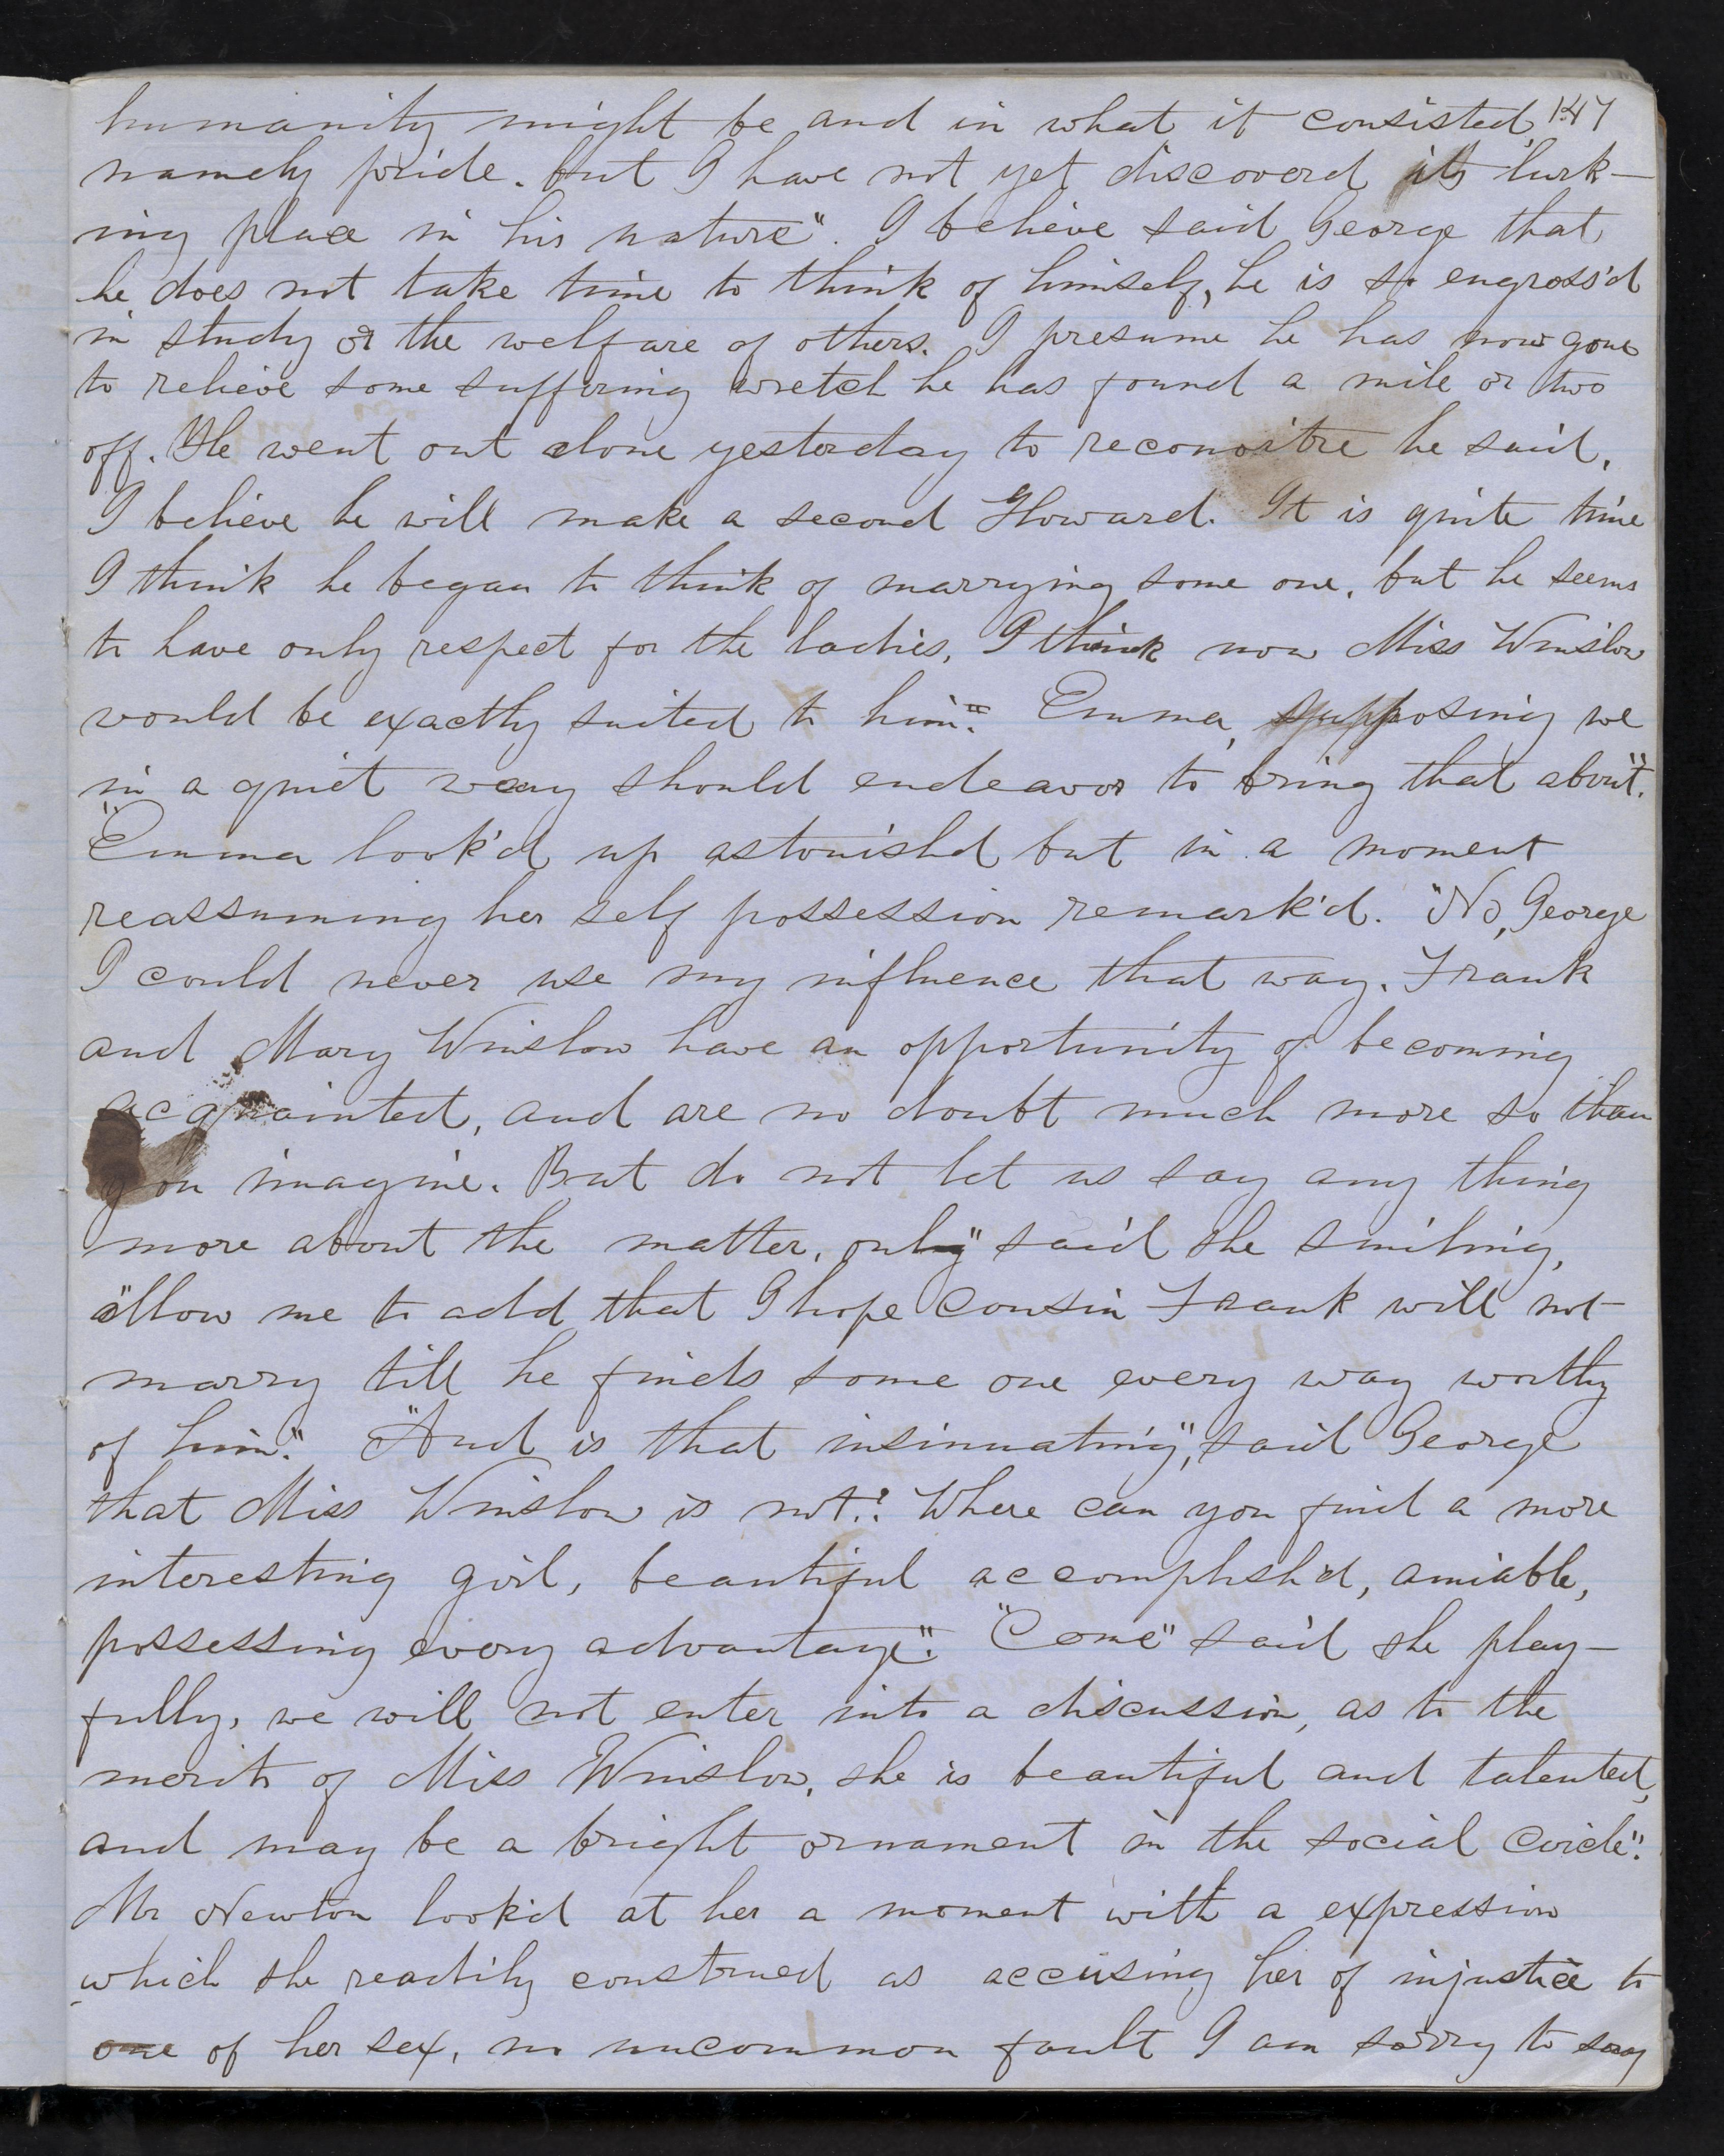 humanity might be and in what it consisted, 147
namely pride. but I have not yet discoverd its lurk-
ing place in his nature". I believe said George that
he does not take time to think of himself, he is so engross'd
in study or the welfare of others. I presume he has now gone
to relieve some suffering wretch he has found a mile or two
off. He went out alone yesterday to reconoitre he said.
I believe he will make a second Howard. It is quite time
I think he began to think of marrying some one, but he seems
to have only respect for the ladies, I think now Miss Winslow
would be exactly suited to him." Emma, supposing we
in a quiet way should endeavor to bring that about".
"Emma look'd up astonishd but in a moment
reassuming her self possession remark'd. "No, George
I could never use my influence that way. Frank
and Mary Winslow have an opportunity of becoming
acquainted, and are no doubt much more so than
you imagine. But do not let us say any thing
more about the matter, only" said she smiling,
"allow me to add that I hope Cousin Frank will not
marry till he finds some one every way worthy
of him." "And is that insinuating", said George
that Miss Winslow is not? Where can you find a more
interesting girl, beautiful accomplish'd, amiable,
possessing every advantage". "Come" said she play-
fully, we will not enter into a discussion, as to the
merits of Miss Winslow, she is beautiful and talented,
and may be a bright ornament in the social circle".
Mr Newton look'd at her a moment with a expression
which she readily construed as accusing her of injustice to
one of her sex, no uncommon fault I am sorry to say